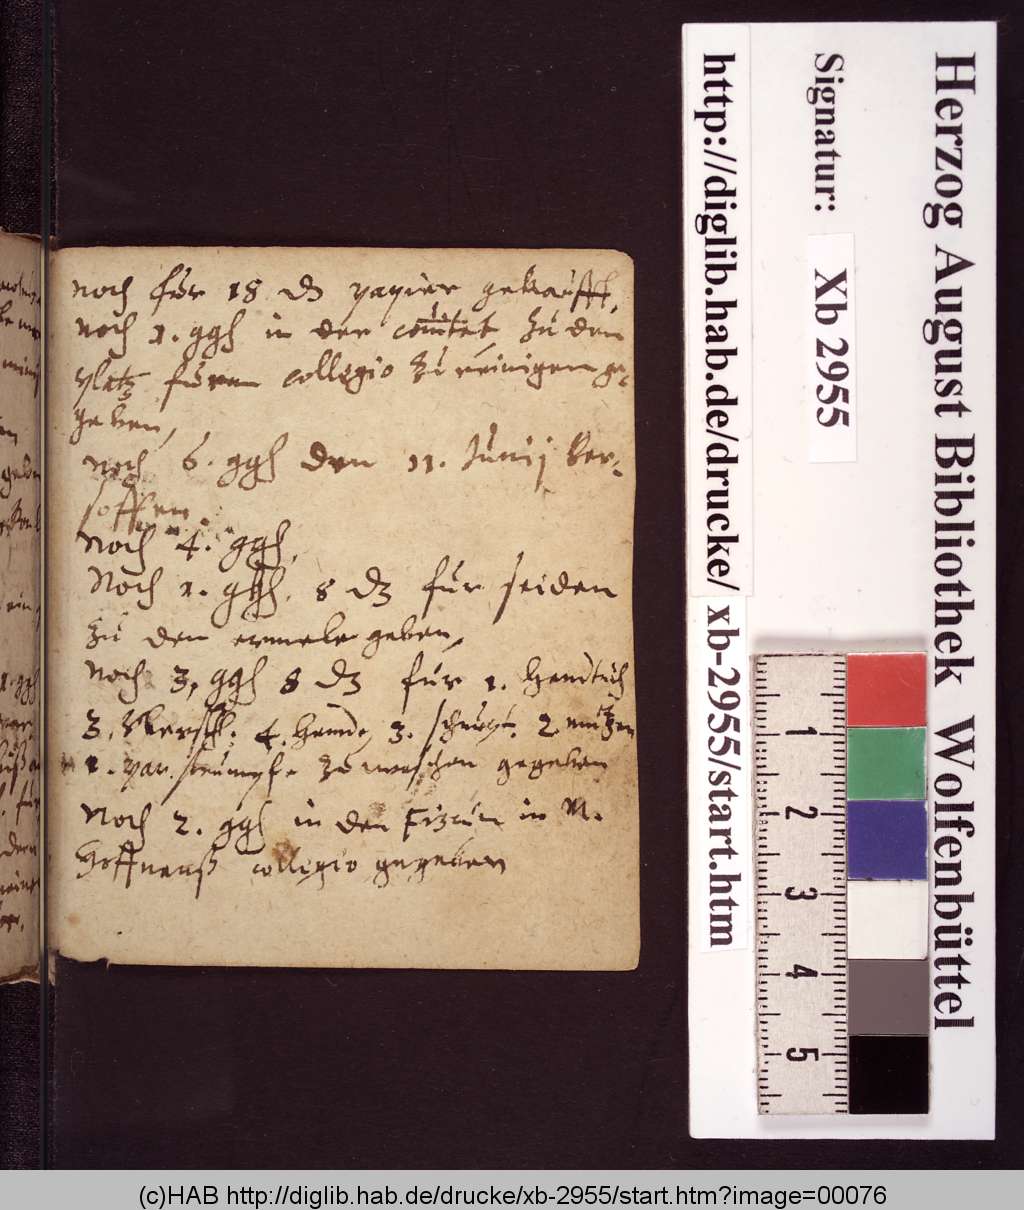 noch für 18 d papier gekaufft,
noch 1. ggl in der comitet zu den
platz fürm collegio zu reinigen ge-
geben,
noch 6. ggl den 11. Junij ver-
soffen
noch 4. ggl,
Noch 1. ggl. 8 d für seiden
zu den ermele geben,
noch 3, ggl 8 d für 1. handtuch
3, 4. hemde, 3. 2. mützen
1. par. strümpfe zu waschen gegeben
Noch 2. ggl in den in M.
Hoffmanß collegio gegeben
Herzog August Bibliothek Wolfenbüttel
Signatur: Xb 2955
http://diglib.hab.de/drucke/ xb-2955/start.htm
1
2
3
4
5
(c)HAB http://diglib.hab.de/drucke/xb-2955/start.htm?image=00076